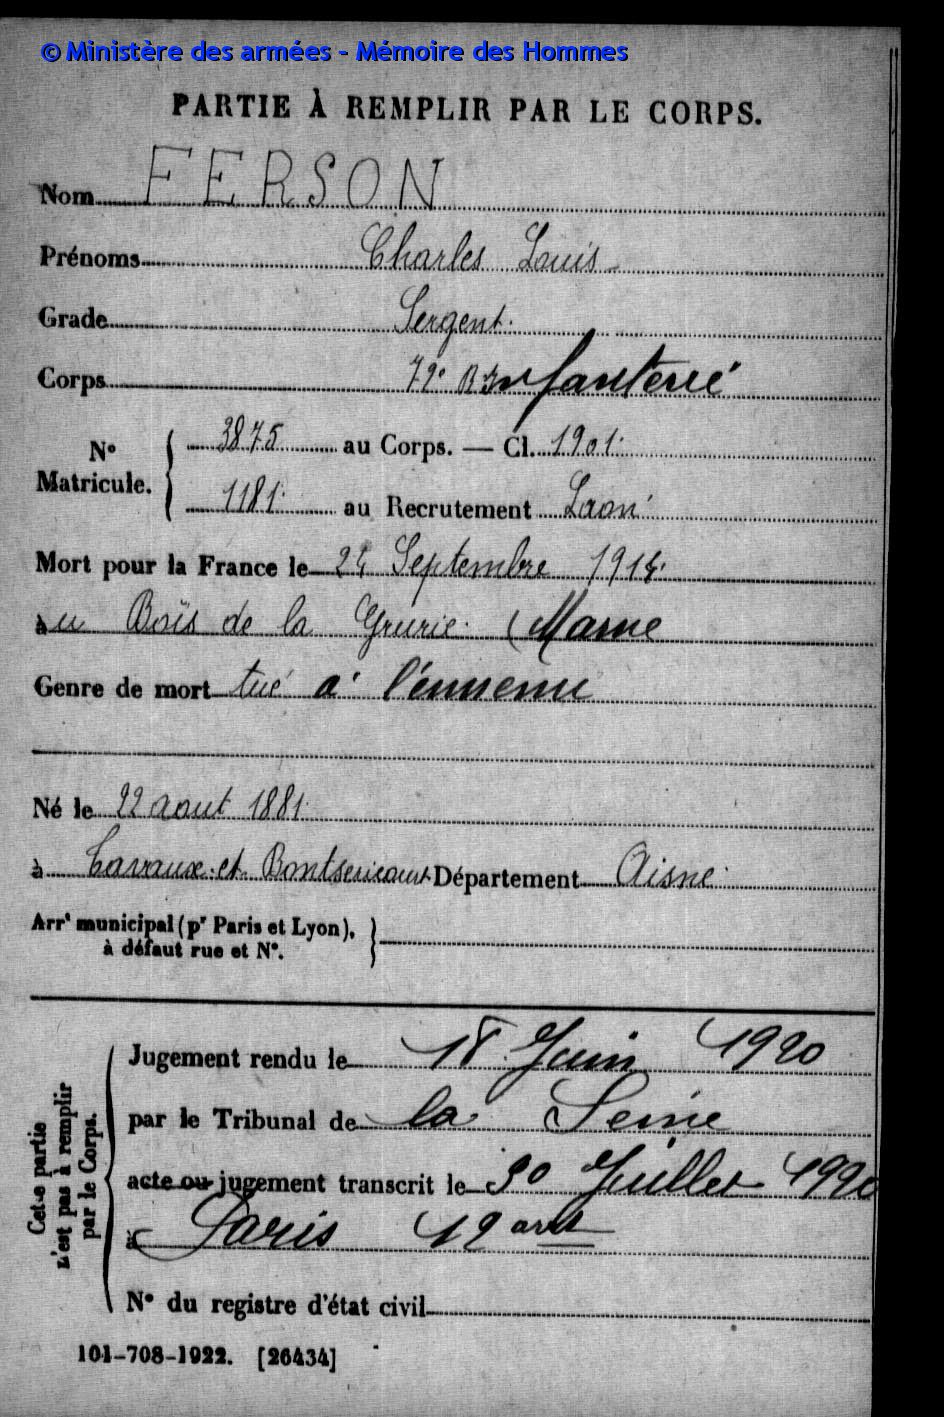 © Ministère des armées - Mémoire des Hommes
PARTIE À REMPLIR PAR LE CORPS.
Nom FERSON
Prénoms Charles Louis
Grade Sergent.
Corps 72e R Infanterie
No Matricule. { 3875 au Corps. — Cl. 1901.
1181 au Recrutement Laon
Mort pour la France le 24 Septembre 1914.
au Bois de la Grurie. (Marne
Genre de mort tué à l'ennemi
Né le 22 aout 1881.
à Lavaux et Département Aisne
Arrt municipal (pr Paris et Lyon), }
à défaut rue et No.
Cette partie n'est pas à remplir par le Corps.
Jugement rendu le 18 Juin 1920
par le Tribunal de la Seine
acte ou jugement transcrit le 30 Juillet 1920
à Paris 12 arrt
No du registre d'état civil
101-708-1922. [26434]